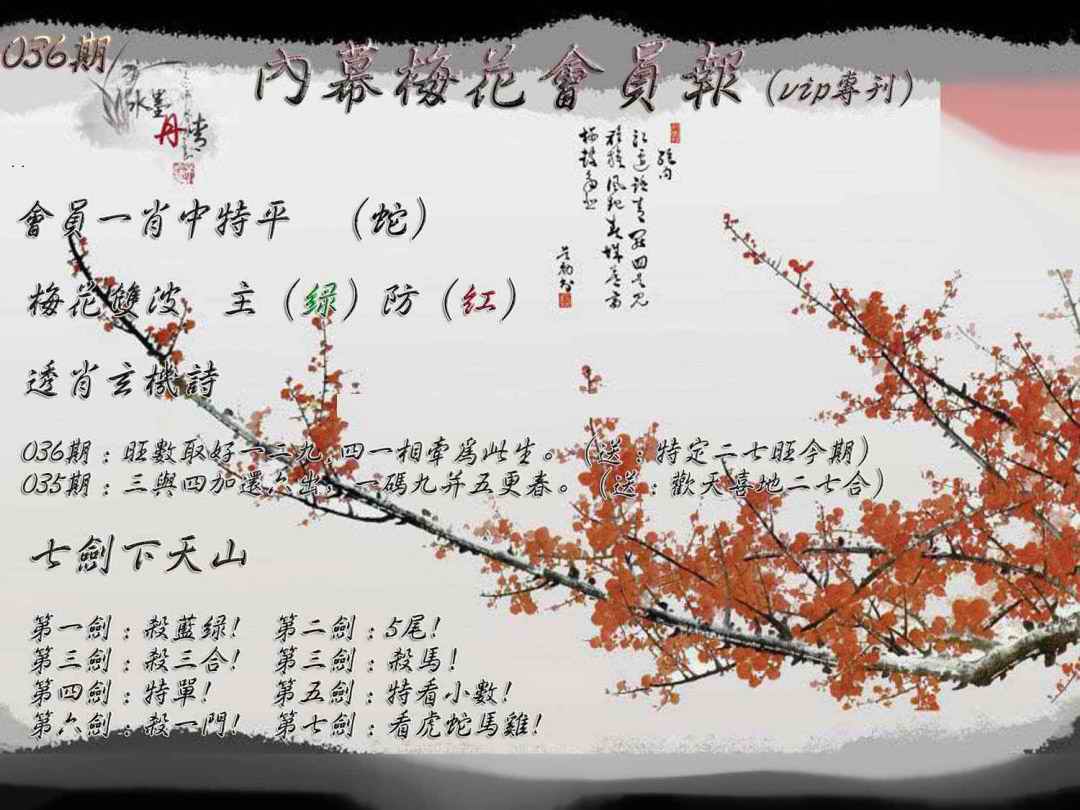 036期
內幕梅花會員報(vip專刊)
水墨
丹青
會員一肖中特平 (蛇)
梅花雙波 主(绿)防(红)
透肖玄機詩
036期:旺數取好一二九,四一相牽為此生。(送:特定二七旺今期)
035期:三與四加還六出,一碼九并五更春。(送:歡天喜地二七合)
七劍下天山
第一劍:殺藍绿! 第二劍:5尾!
第三劍:殺三合! 第三劍:殺馬!
第四劍:特單! 第五劍:特看小數!
第六劍:殺一門! 第七劍:看虎蛇馬雞!